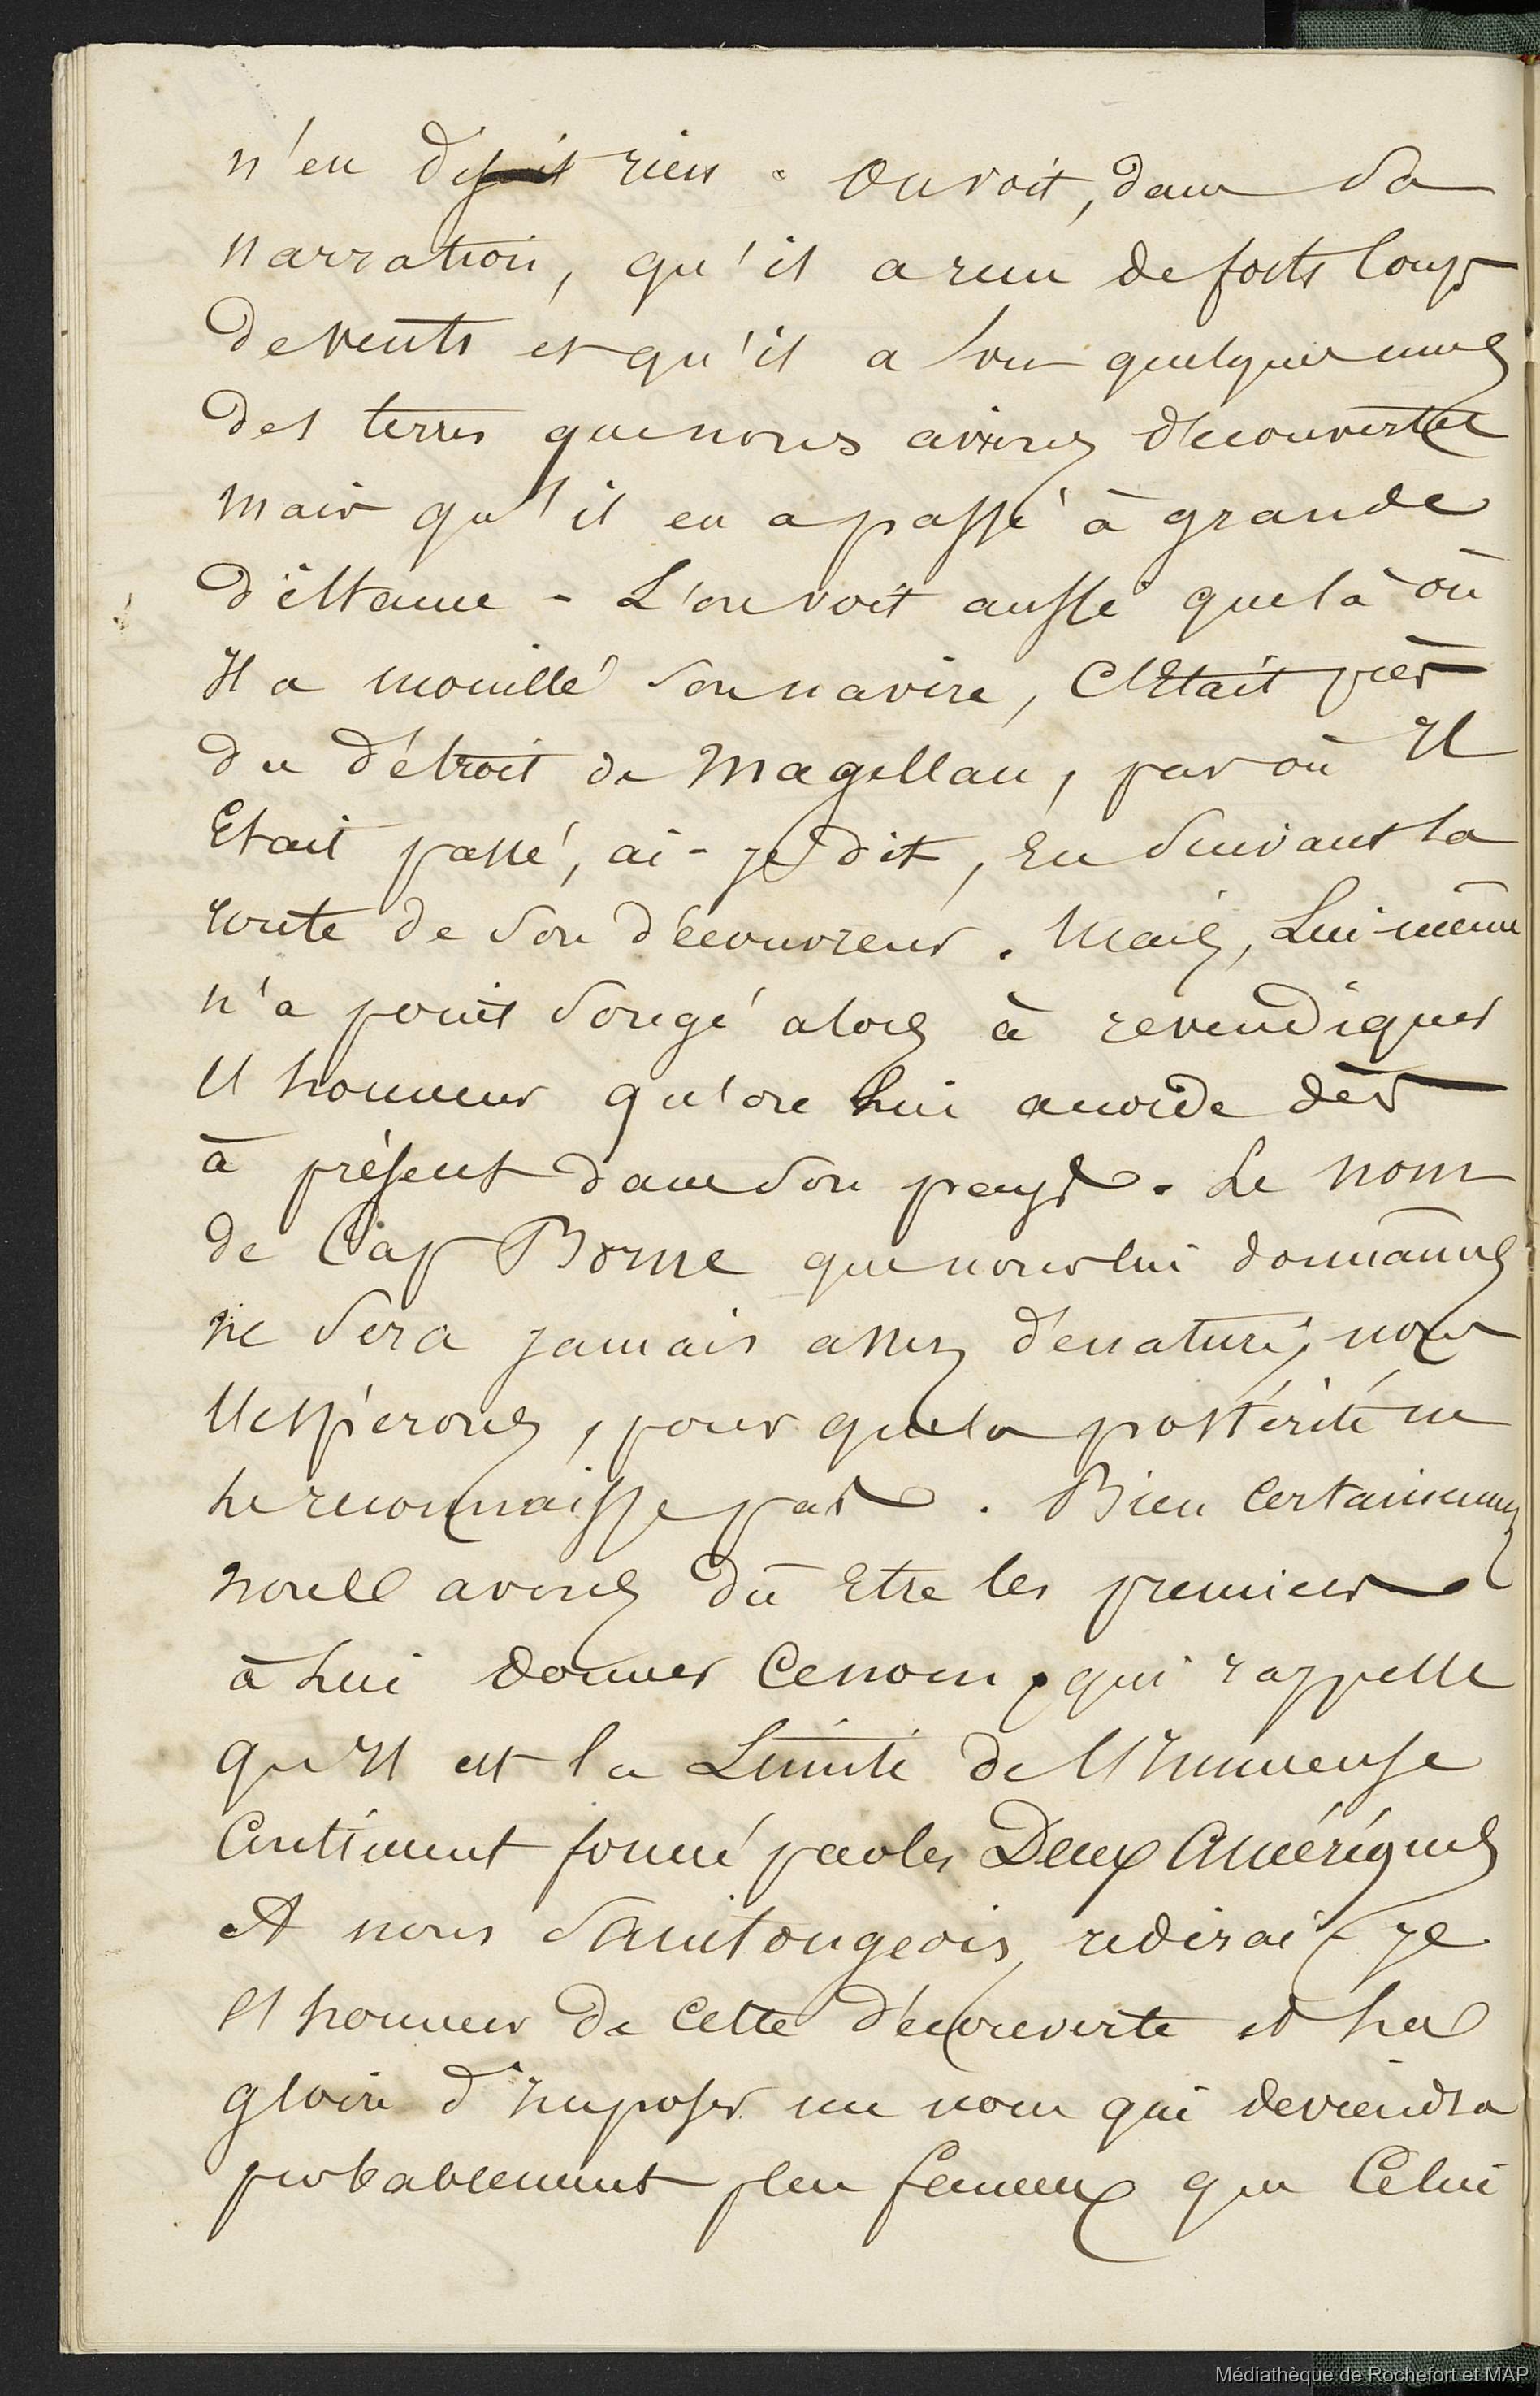 n'en dit rien. On voit, dans sa
narration, qu'il a reçu de forts coups
de vents et qu'il a vu quelques unes
des terres que nous avions découvertes
mais qu'il en a passé à grande
distance - L'on voit aussi que là où
Il a mouillé son navire, C'Etait près
du détroit de Magellan, par où Il
Etait passé, ai-je dit, En suivant la
route de son découvreur. Mais, Lui-même
n'a point songé alors à revendiquer
l'honneur qu'on Lui accorde dès
à présent dans son pays. Le nom
de Cap Borne que nous lui donnâmes
ne sera jamais assez dénaturé, nous
l'espérons, pour que la postérité ne
le reconnaisse pas. Bien Certainement
nous avons dû Etre les premiers
à Lui donner Ce nom, qui rappelle
qu'Il est la Limite de l'Immense
Continent formé par les Deux Amériques
A nous Saintongeois, redirai-je
l'honneur de Cette découverte et La
gloire d'Imposer un nom qui deviendra
probablement plus fameux que Celui
Médiathèque de Rochefort et MAP